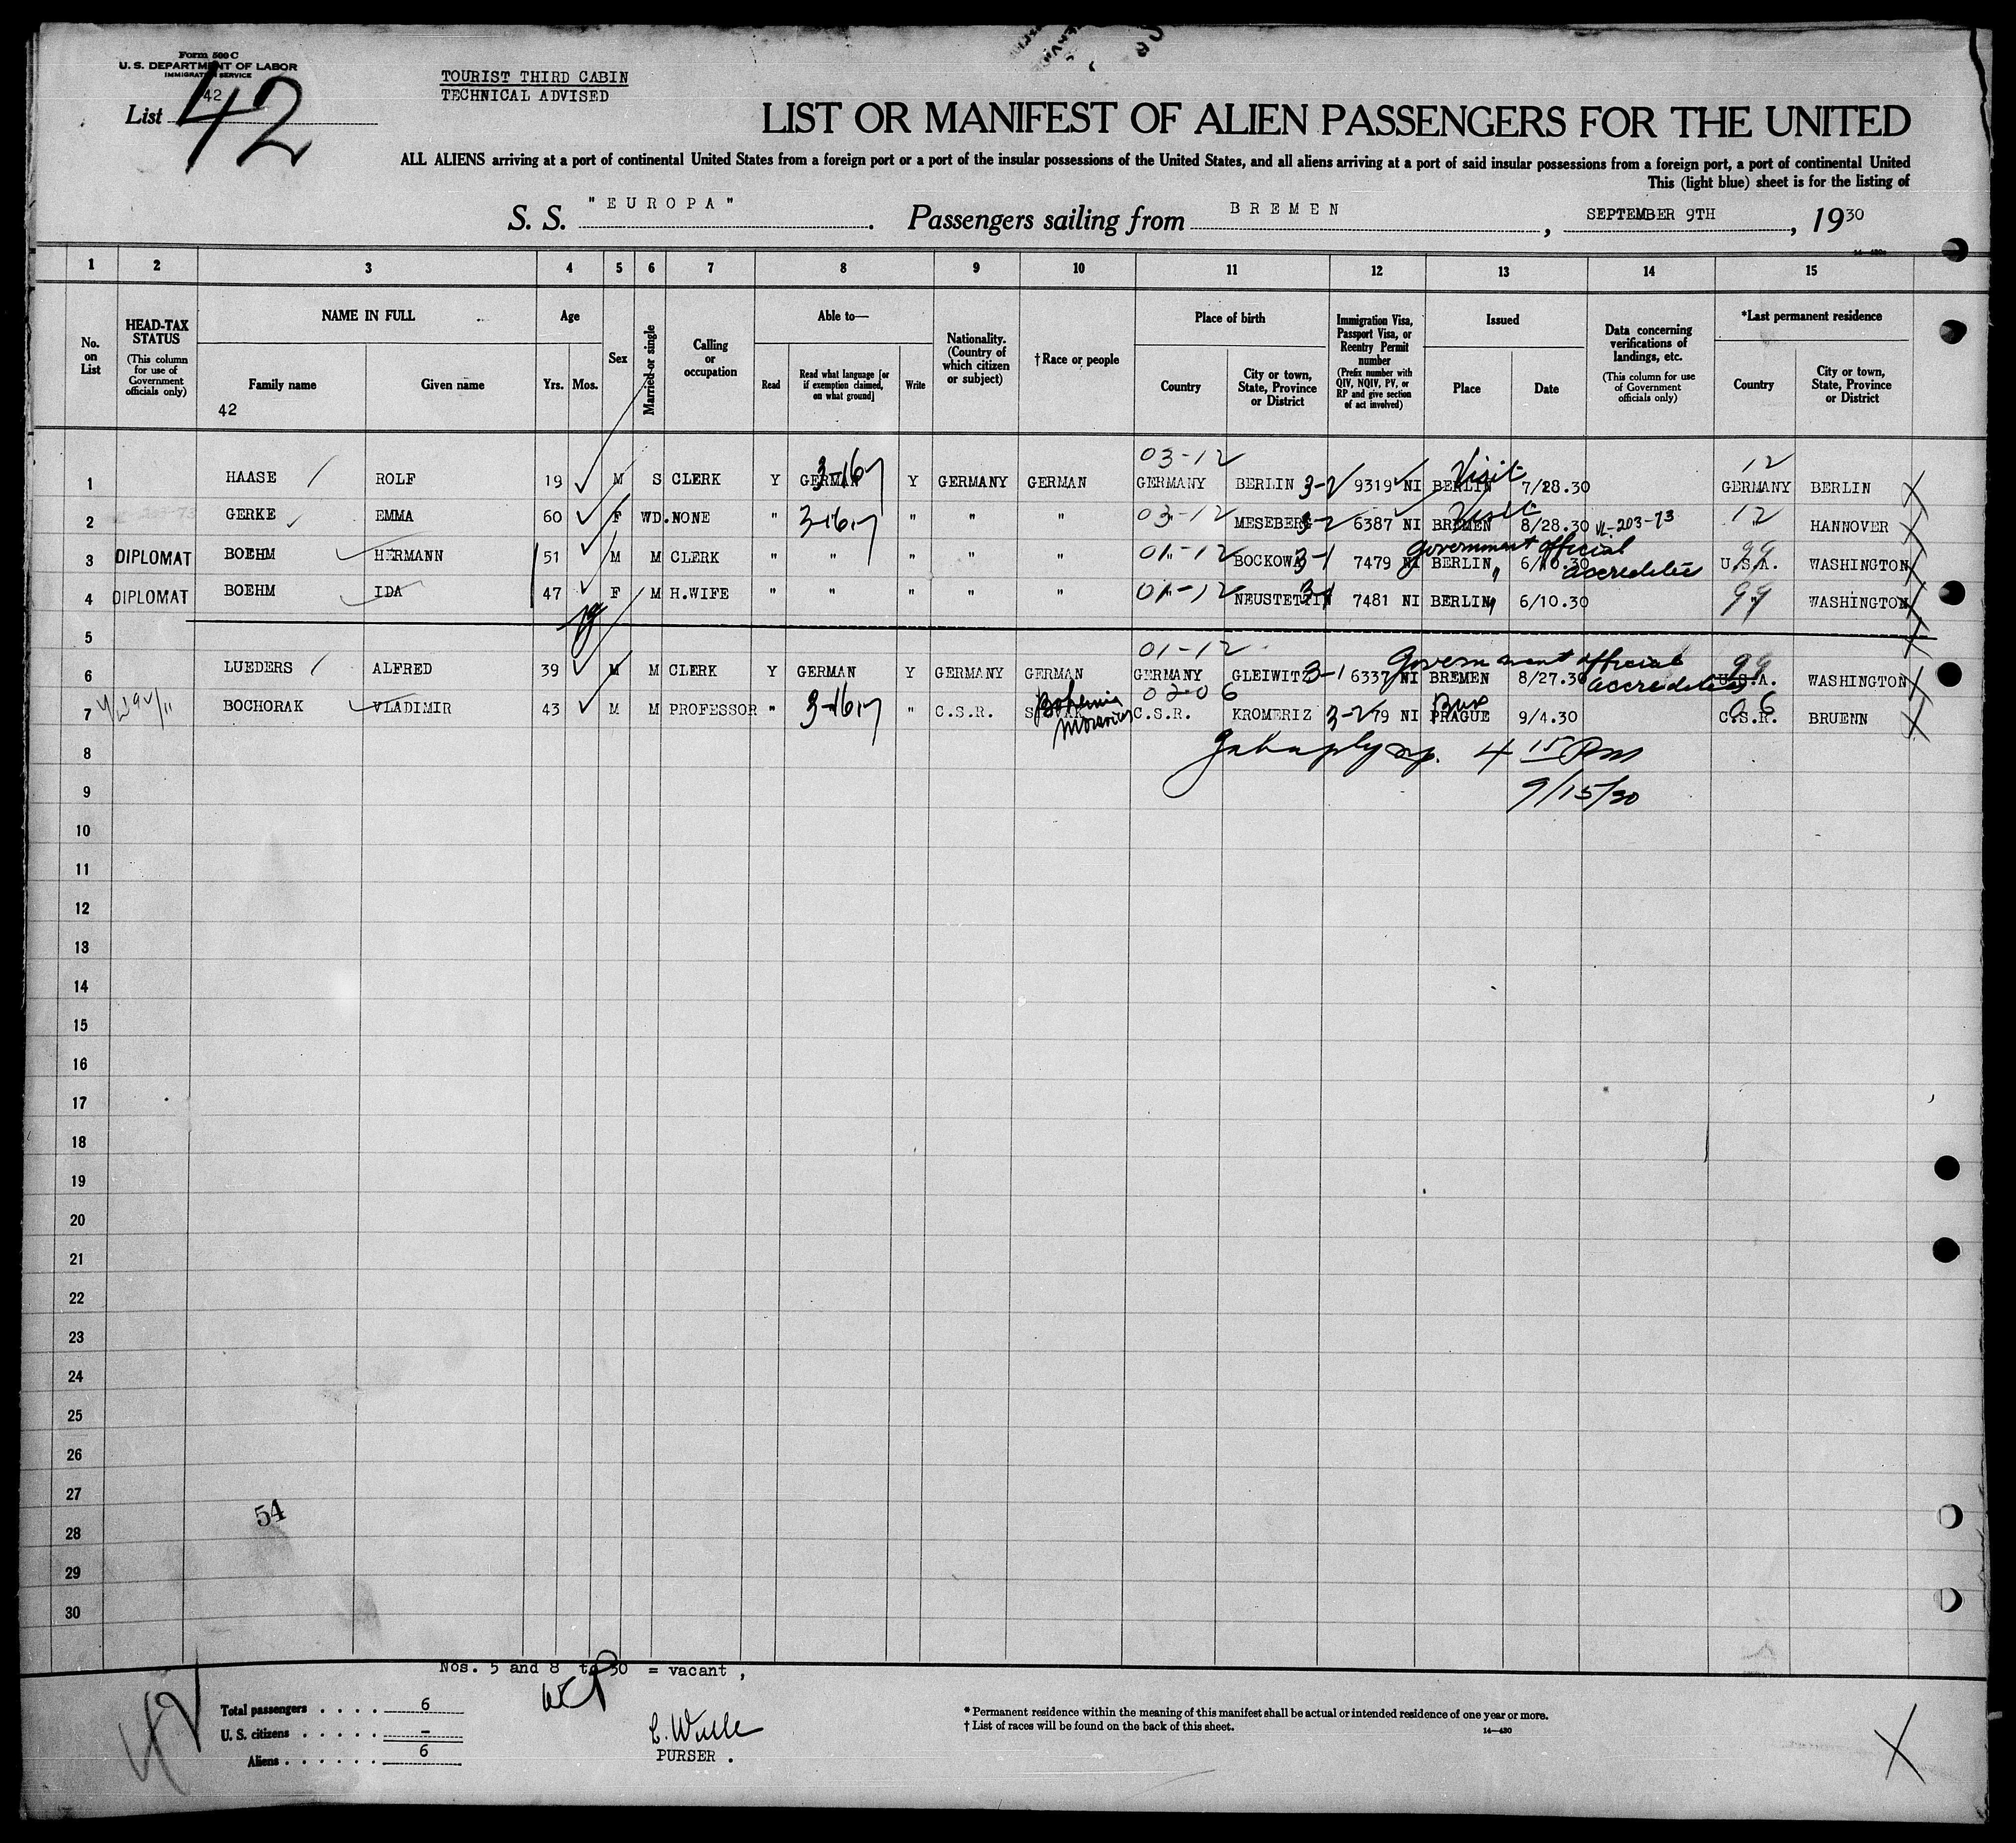 Form 500 C
U. S. DEPARTMENT OF LABOR
IMMIGRATION SERVICE
List 42
42
TOURIST THIRD CABIN
TECHNICAL ADVISED
LIST OR MANIFEST OF ALIEN PASSENGERS FOR THE UNITED
ALL ALIENS arriving at a port of continental United States from a foreign port or a port of the insular possessions of the United States, and all aliens arriving at a port of said insular possessions from a foreign port, a port of continental United
This (light blue) sheet is for the listing of
S. S. "EUROPA". Passengers sailing from BREMEN, SEPTEMBER 9TH, 1930
1 2 3 4 5 6 7 8 9 10 11 12 13 14 15
No. on List
HEAD-TAX STATUS (This column for use of Government officials only)
NAME IN FULL
Family name
Given name
42
Age
Yrs. Mos.
Sex
Married or single
Calling or occupation
Able to—
Read
Read what language [or if exemption claimed, on what ground]
Write
Nationality. (Country of which citizen or subject)
†Race or people
Place of birth
Country
City or town, State, Province or District
Immigration Visa, Passport Visa, or Reentry Permit number (Prefix number with QIV, NQIV, PV, or RP and give section of act involved)
Issued
Place
Date
Data concerning verifications of landings, etc. (This column for use of Government officials only)
*Last permanent residence
Country
City or town, State, Province or District
03-12 Visit 12
1 HAASE ROLF 19 M S CLERK Y GERMAN 3-16-7 Y GERMANY GERMAN GERMANY BERLIN 3-2 9319 NI BERLIN 7/28.30 GERMANY BERLIN
2 GERKE EMMA 60 F WD. NONE " 3-16-7 " " " 03-12 MESEBERG 3-2 6387 NI BREMEN Visit 8/28.30 VL-203-73 12 HANNOVER
3 DIPLOMAT BOEHM HERMANN 51 M M CLERK " " " " " 01-12 BOCKOWA 3-1 7479 NI BERLIN 6/10.30 Government official accredited U.S.A. 99 WASHINGTON
4 DIPLOMAT BOEHM IDA 47 F M H.WIFE " " " " " 01-12 NEUSTETTIN 3-1 7481 NI BERLIN " 6/10.30 99 " WASHINGTON
5
01-12 Government official accredited 99
6 LUEDERS ALFRED 39 M M CLERK Y GERMAN Y GERMANY GERMAN GERMANY GLEIWITZ 3-1 6337 NI BREMEN 8/27.30 U.S.A. WASHINGTON
7 BOCHORAK VLADIMIR 43 M M PROFESSOR " 3-16-7 " C.S.R. Bohemia Moravian 02-06 C.S.R. KROMERIZ 3-2 79 NI PRAGUE Bus 9/4.30 C.S.R. 06 BRUENN
8 4 15 PM
9 9/15/30
10
11
12
13
14
15
16
17
18
19
20
21
22
23
24
25
26
27
54
28
29
30
Nos. 5 and 8 to 30 = vacant,
42
Total passengers . . . . 6
U. S. citizens . . . . . –
Aliens . . . . . . 6
PURSER .
* Permanent residence within the meaning of this manifest shall be actual or intended residence of one year or more.
† List of races will be found on the back of this sheet.
14—430